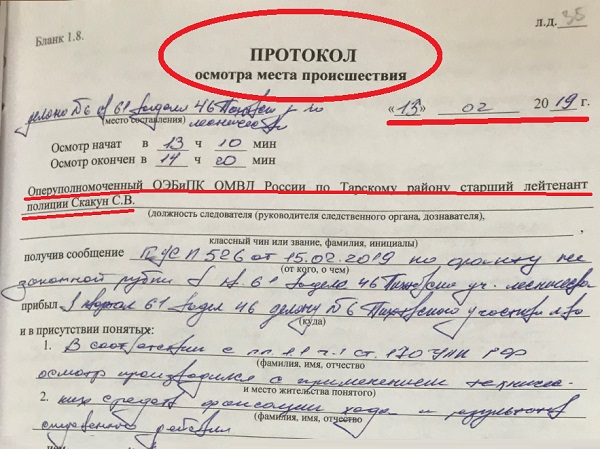 л.д. 35
Бланк 1.8.
ПРОТОКОЛ
осмотра места происшествия
делянка №6 кв 61 выдела 46
«13» 02 2019 г.
(место составления) лесничества
Осмотр начат в 13 ч 10 мин
Осмотр окончен в 14 ч 20 мин
Оперуполномоченный ОЭБиПК ОМВД России по Тарскому району старший лейтенант
полиции Скакун С.В.
(должность следователя (руководителя следственного органа, дознавателя),
классный чин или звание, фамилия, инициалы)
получив сообщение КУСП 526 от 15.02.2019 по факту не
(от кого, о чем)
законной рубки в кв. 61 выдела 46 уч. лесничества
прибыл в квартал 61 выдел 46 делянку №6 участкового л-во
(куда)
и в присутствии понятых:
1. В соответствии с п.п. 1.1 ч.1 ст. 170 УПК РФ
(фамилия, имя, отчество
осмотр производился с применением техничес-
и место жительства понятого)
2. ких средств фиксации хода и результатов
(фамилия, имя, отчество
следственного действия